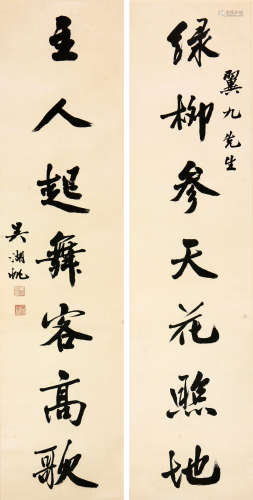 綠柳參天花地
翼九先生
主人起舞客高歌
吳湖帆